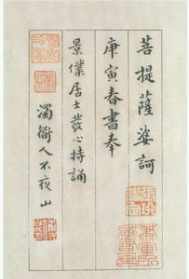 菩提薩婆訶
庚寅春書奉
景僕居士發心持誦
濁衞人不夜山